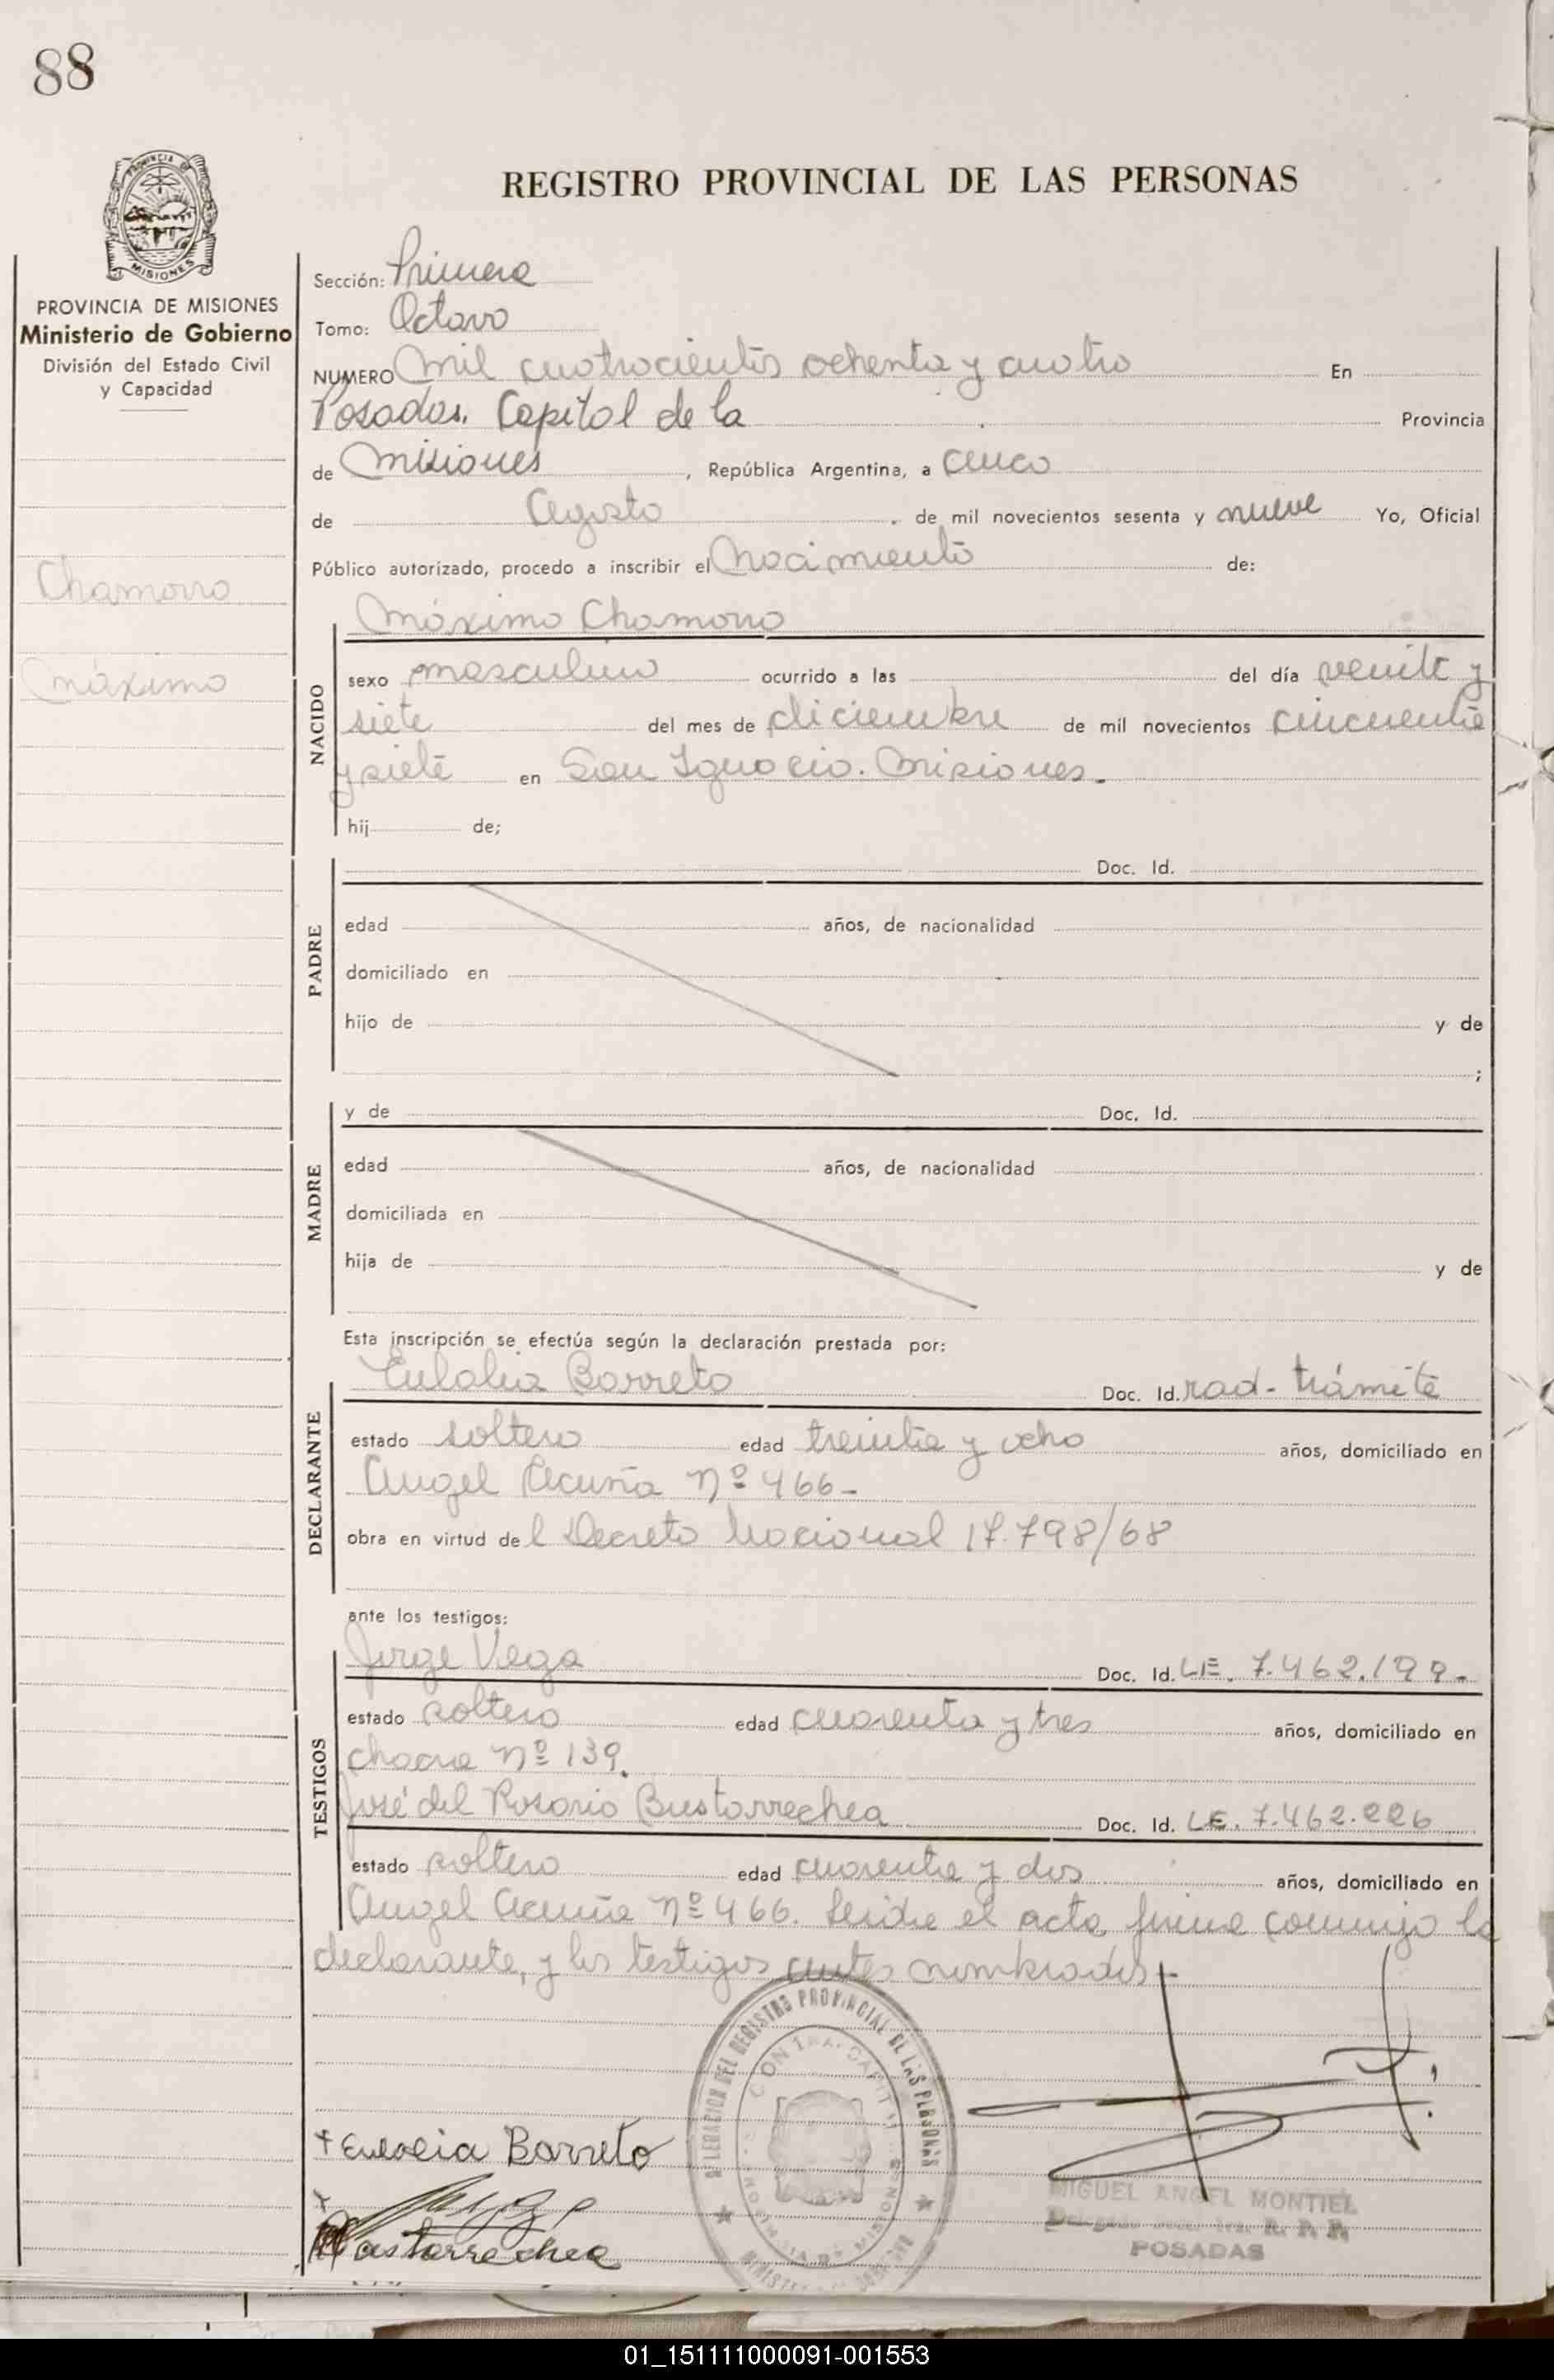 88
REGISTRO PROVINCIAL DE LAS PERSONAS
PROVINCIA DE MISIONES
PROVINCIA DE MISIONES
Ministerio de Gobierno
División del Estado Civil
y Capacidad
Chamorro
Máximo
Sección: Primera
Tomo: Octavo
NUMERO Mil cuatrocientos ochenta y cuatro En
Posadas. Capital de la Provincia
de Misiones, República Argentina, a cinco
de Agosto de mil novecientos sesenta y nueve Yo, Oficial
Público autorizado, procedo a inscribir el Nacimiento de:
NACIDO
Máximo Chamorro
sexo masculino ocurrido a las del día veinte y
siete del mes de diciembre de mil novecientos cincuenta
y siete en San Ignacio. Misiones.
hij de;
PADRE
Doc. Id.
edad años, de nacionalidad
domiciliado en
hijo de y de
;
MADRE
y de Doc. Id.
edad años, de nacionalidad
domiciliada en
hija de y de
Esta inscripción se efectúa según la declaración prestada por:
DECLARANTE
Eulalia Barreto Doc. Id. rad- trámite
estado soltera edad treinta y ocho años, domiciliado en
Angel Acuña Nº 466-
obra en virtud del Decreto Nacional 17.798/68
ante los testigos:
TESTIGOS
Jorge Vega Doc. Id. LE. 7.462.199-
estado soltero edad cuarenta y tres años, domiciliado en
chacra Nº 139.
José del Rosario Bustarrechea Doc. Id. LE. 7.462.226
estado soltero edad cuarenta y dos años, domiciliado en
Angel Acuña Nº 466. Leída el acta, firma conmigo la
declarante, y los testigos antes nombrados.-
DELEGACION DEL REGISTRO PROVINCIAL DE LAS PERSONAS
+ Eulalia Barreto
Bustarrechea
MIGUEL ANGEL MONTIEL
R. P. P.
POSADAS
01_151111000091-001553